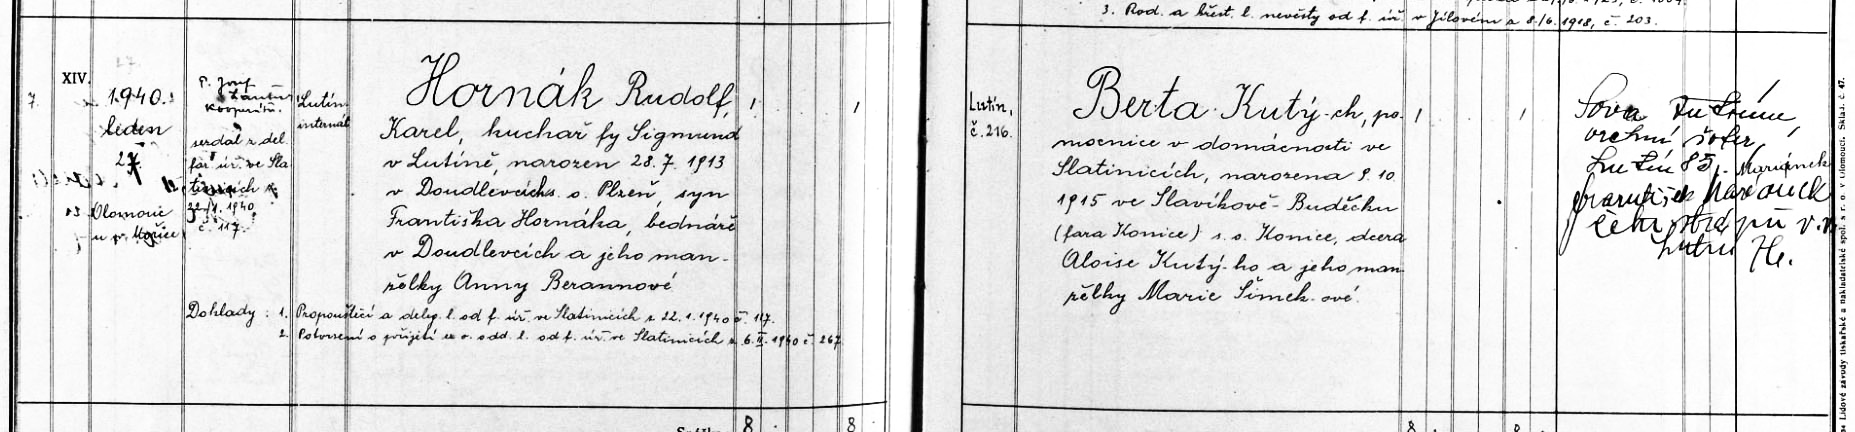 3. Rod. a křest. l. nevěsty od f. úř. v Jílovém a 8./6. 1918, č. 203.
XIV.
7.
1940
leden
27
Olomouc
u sv. Mořice
P. Josef
kooperátor
serdal z del.
far. úř. ve Sla
tinicích
22./I. 1940
č. 117.
Lutín
internát
Hornák Rudolf,
Karel, kuchař fy Sigmund
v Lutíně, narozen 28. 7. 1913
v Doudlevcích s. o. Plzeň, syn
Františka Hornáka, bednáře
v Doudlevcích a jeho man-
želky Anny Berannové
1
1
Doklady: 1. Propouštěcí a deleg. l. od f. úř. ve Slatinicích z 22. 1. 1940 č. 117.
2. Potvrzení o přijetí odd. l. od f. úř. ve Slatinicích z 6. II. 1940 č. 267.
8
8
Lutín,
č. 216.
Berta Kutý-ch, po-
mocnice v domácnosti ve
Slatinicích, narozena 9. 10.
1915 ve Slavíkově-Buděčku
(fara Konice) s. o. Konice, dcera
Aloise Kutý-ho a jeho man-
želky Marie Šimek-ové.
1
1
Sova
vrchní šofer,
Lutín 85. Mariánek
František Mariánek
Lutín
8
8
Lidové závody tiskařské a nakladatelské spol. s r. o. v Olomouci. Sklad. č. 47.